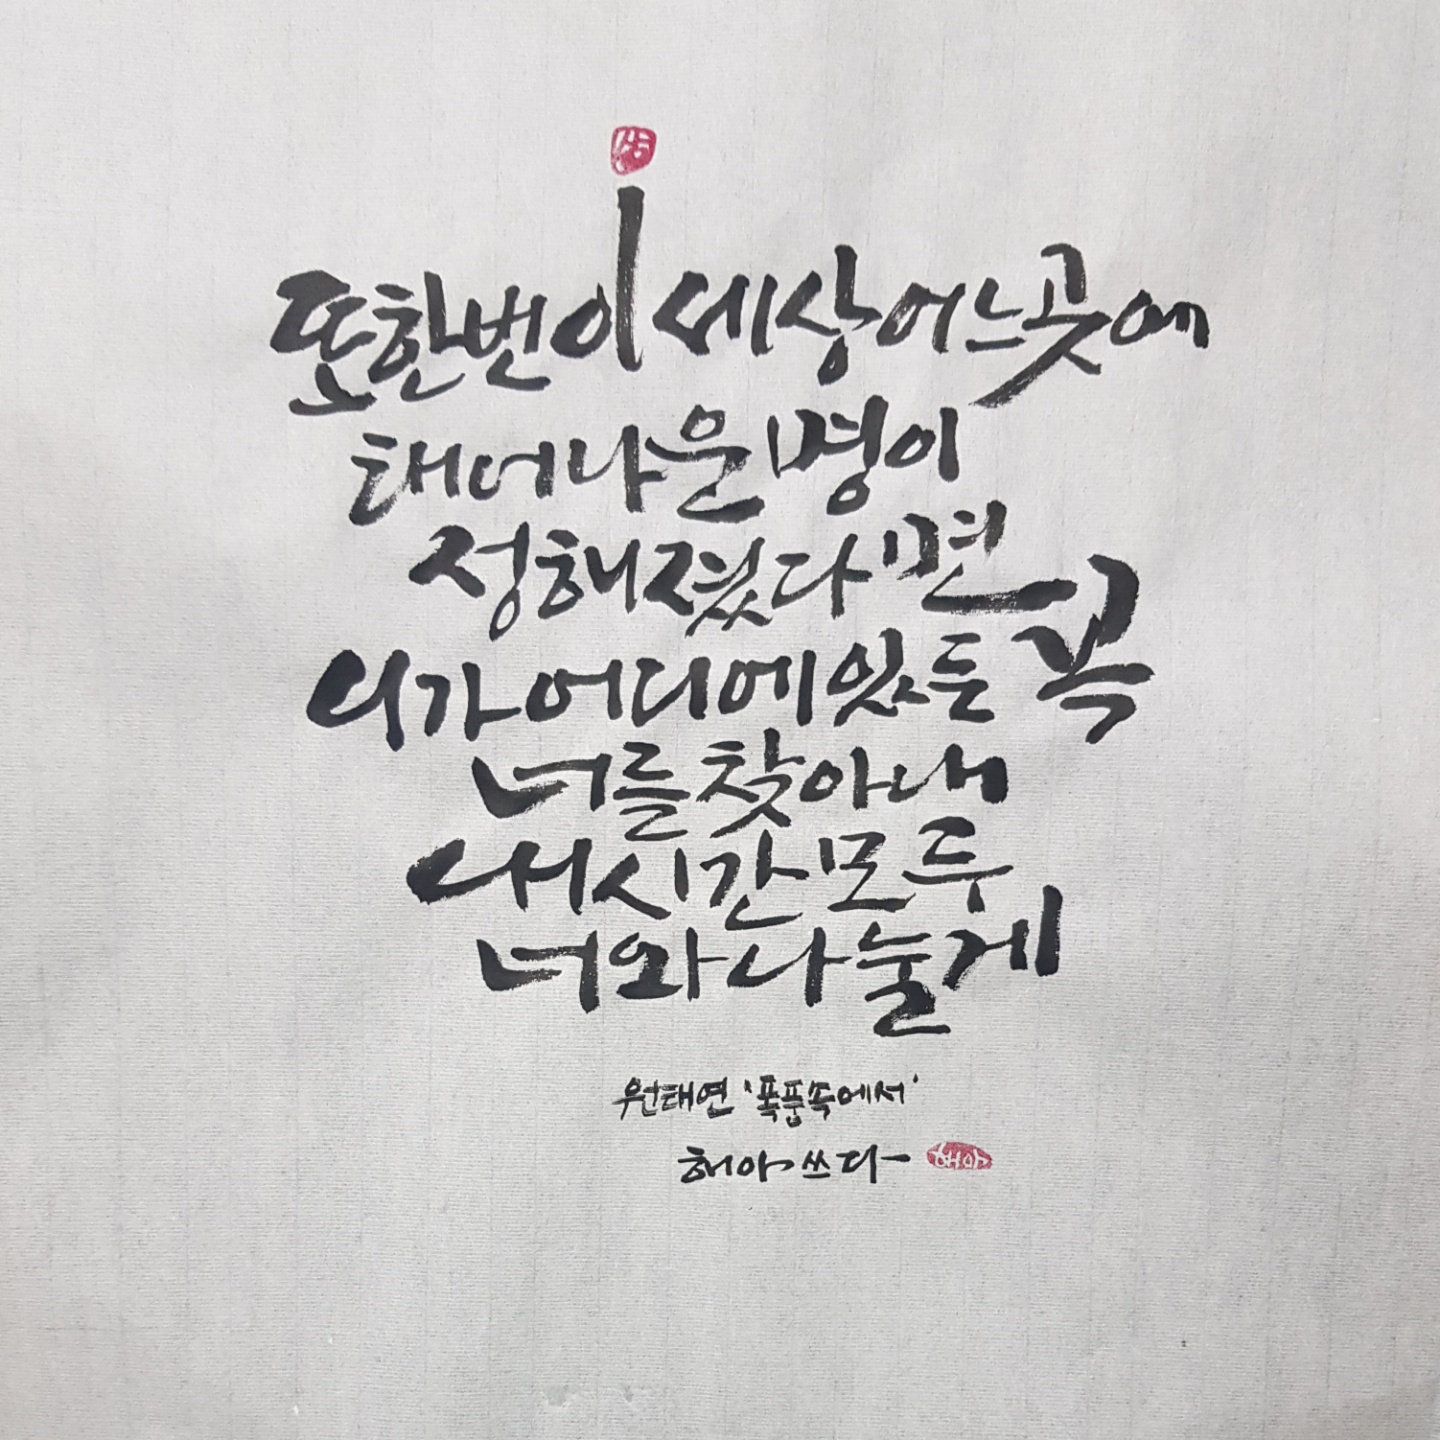 또한번이세상어느곳에
태어나운명이
정해졌다면 꼭
니가어디에있든
너를찾아내
내시간모두
너와나눌게
원태연 '폭풍속에서'
해아쓰다
해아